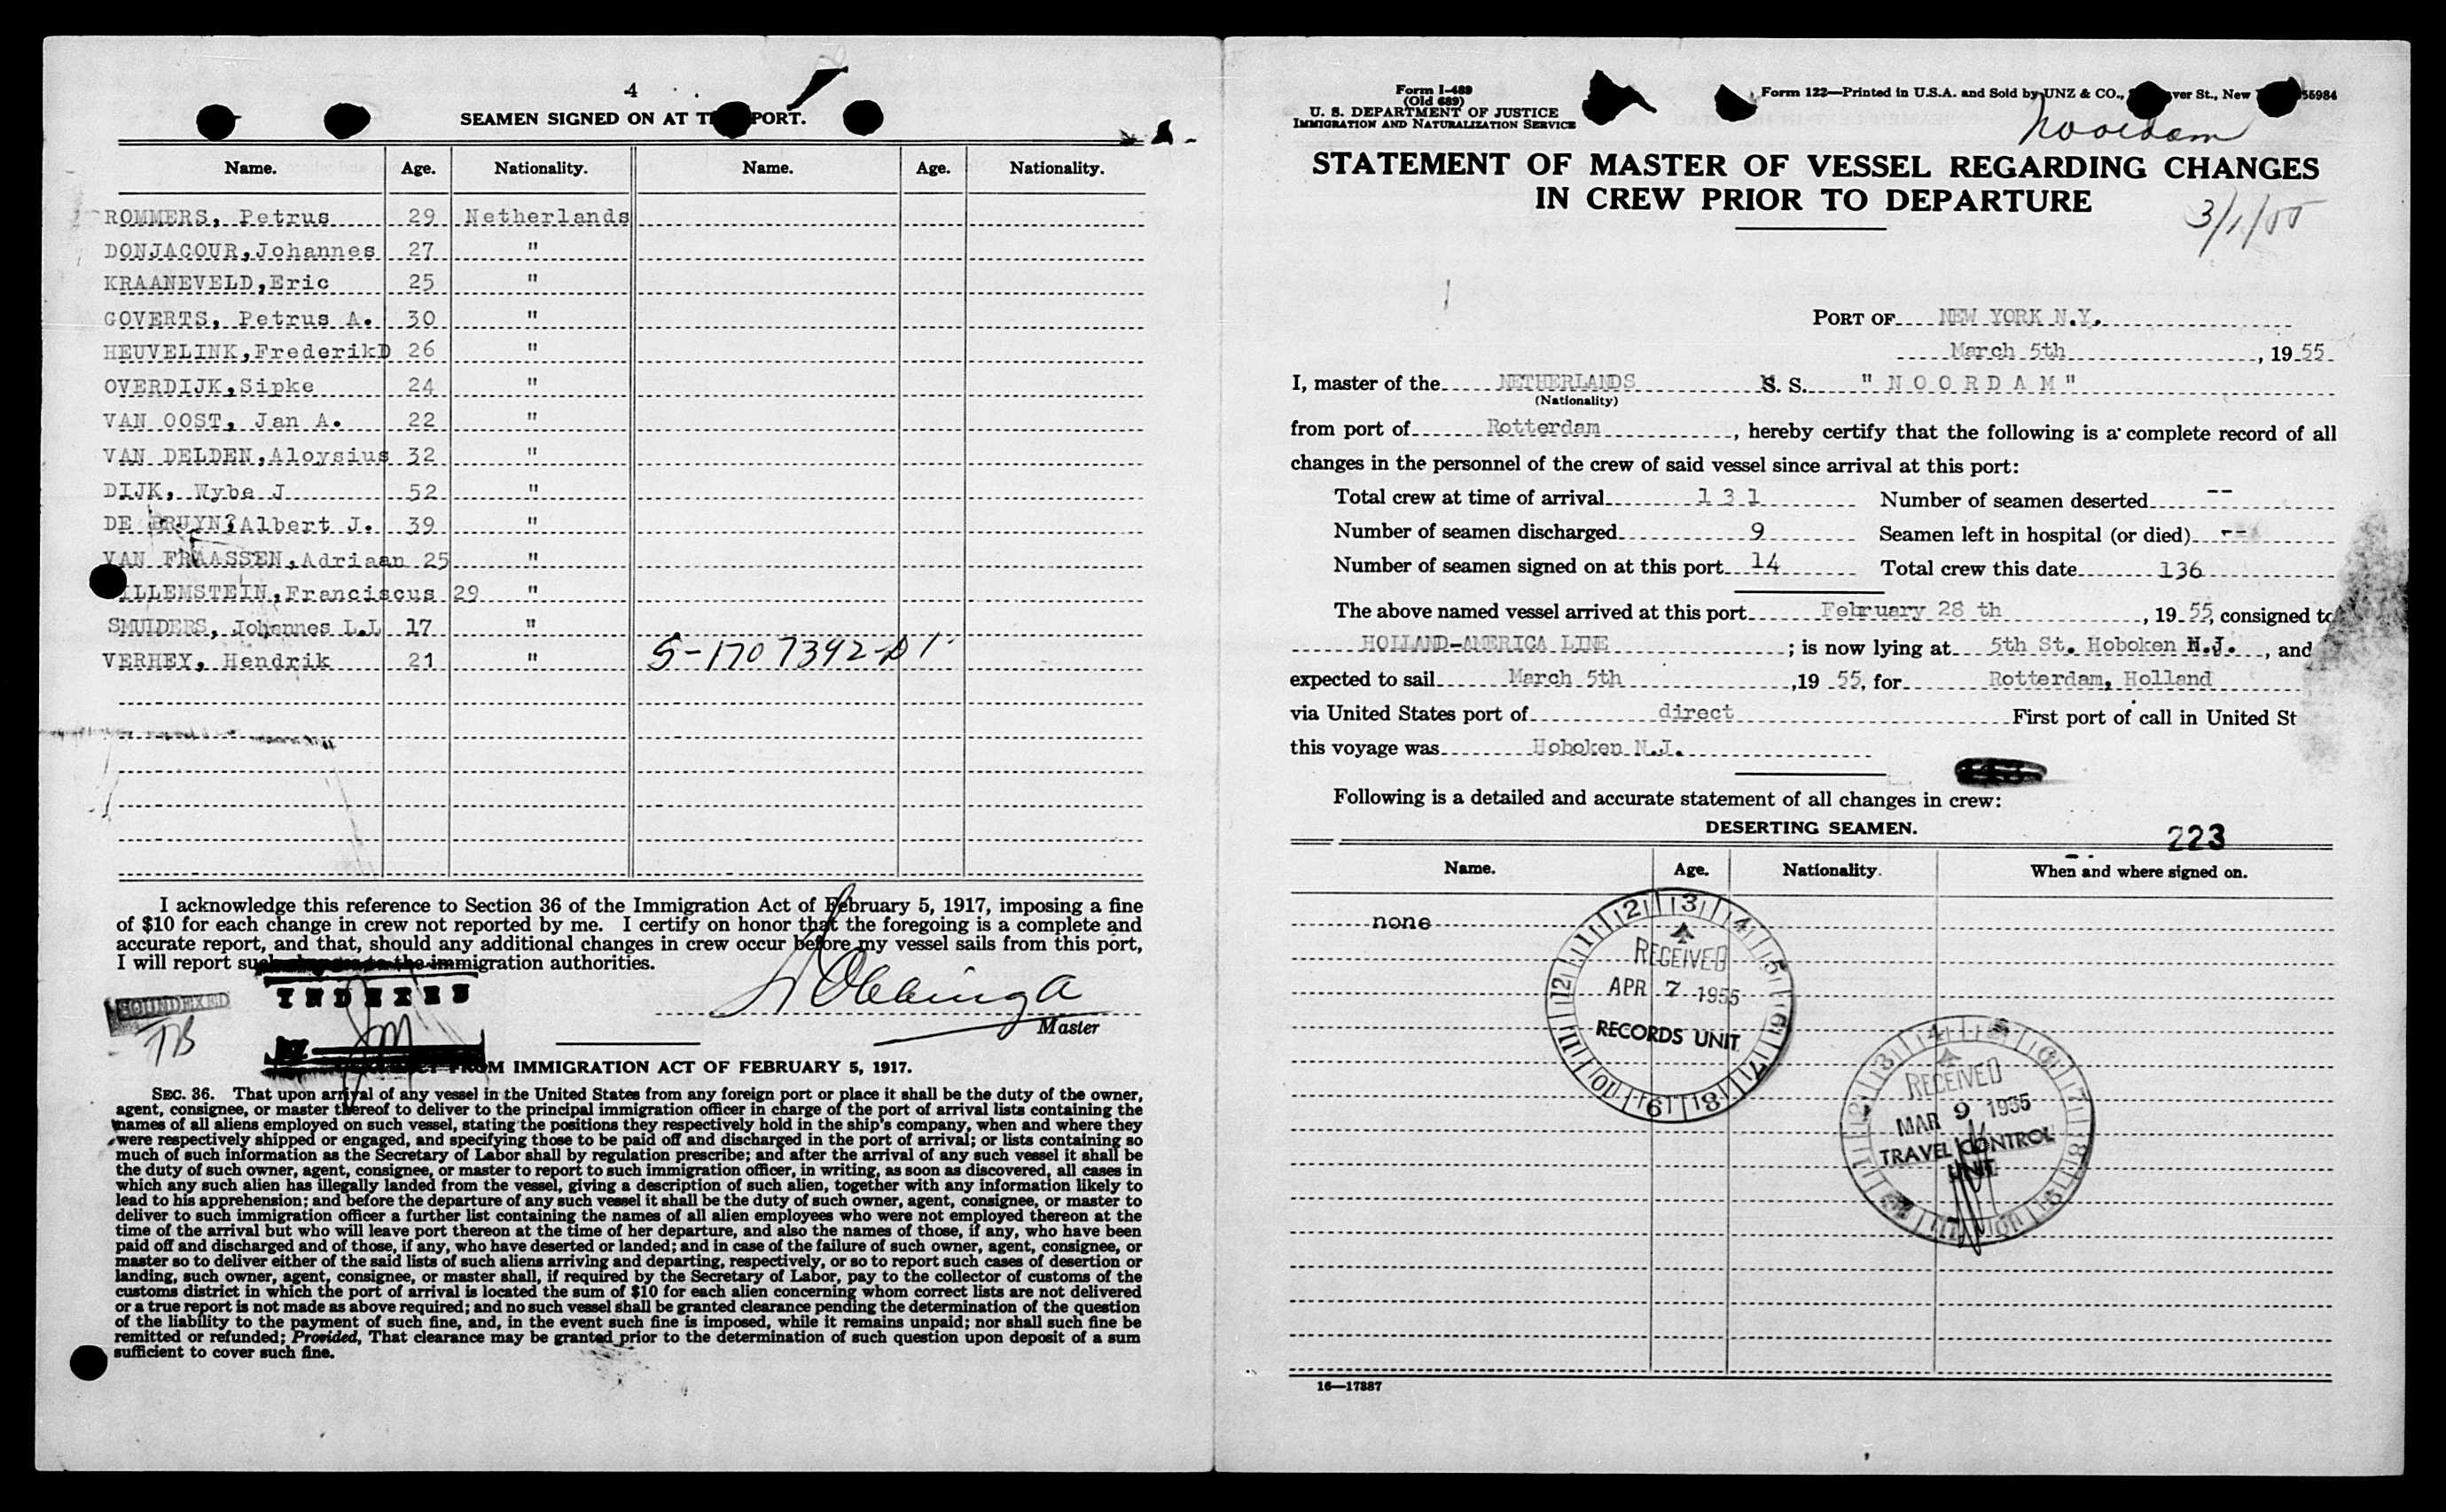 4
SEAMEN SIGNED ON AT T PORT.
Name. Age. Nationality. Name. Age. Nationality.
ROMMERS, Petrus 29 Netherlands
DONJACOUR,Johannes 27 "
KRAANEVELD,Eric 25 "
GOVERTS, Petrus A. 30 "
HEUVELINK,FrederikD 26 "
OVERDIJK,Sipke 24 "
VAN OOST, Jan A. 22 "
VAN DELDEN,Aloysius 32 "
DIJK, Wybe J 52 "
DE BRUYN?Albert J. 39 "
VAN FRAASSEN,Adriaan 25 "
ILLEMSTEIN,Franciscus 29 "
SMUIDERS, Johannes L.L 17 "
VERHEY, Hendrik 21 " S-1707392-D1
I acknowledge this reference to Section 36 of the Immigration Act of February 5, 1917, imposing a fine
of $10 for each change in crew not reported by me. I certify on honor that the foregoing is a complete and
accurate report, and that, should any additional changes in crew occur before my vessel sails from this port,
I will report such the immigration authorities.
SOUNDEXED
TB
INDEXED
BY
Master
FROM IMMIGRATION ACT OF FEBRUARY 5, 1917.
SEC. 36. That upon arrival of any vessel in the United States from any foreign port or place it shall be the duty of the owner,
agent, consignee, or master thereof to deliver to the principal immigration officer in charge of the port of arrival lists containing the
names of all aliens employed on such vessel, stating the positions they respectively hold in the ship's company, when and where they
were respectively shipped or engaged, and specifying those to be paid off and discharged in the port of arrival; or lists containing so
much of such information as the Secretary of Labor shall by regulation prescribe; and after the arrival of any such vessel it shall be
the duty of such owner, agent, consignee, or master to report to such immigration officer, in writing, as soon as discovered, all cases in
which any such alien has illegally landed from the vessel, giving a description of such alien, together with any information likely to
lead to his apprehension; and before the departure of any such vessel it shall be the duty of such owner, agent, consignee, or master to
deliver to such immigration officer a further list containing the names of all alien employees who were not employed thereon at the
time of the arrival but who will leave port thereon at the time of her departure, and also the names of those, if any, who have been
paid off and discharged and of those, if any, who have deserted or landed; and in case of the failure of such owner, agent, consignee, or
master so to deliver either of the said lists of such aliens arriving and departing, respectively, or so to report such cases of desertion or
landing, such owner, agent, consignee, or master shall, if required by the Secretary of Labor, pay to the collector of customs of the
customs district in which the port of arrival is located the sum of $10 for each alien concerning whom correct lists are not delivered
or a true report is not made as above required; and no such vessel shall be granted clearance pending the determination of the question
of the liability to the payment of such fine, and, in the event such fine is imposed, while it remains unpaid; nor shall such fine be
remitted or refunded; Provided, That clearance may be granted prior to the determination of such question upon deposit of a sum
sufficient to cover such fine.
Form I-489
(Old 689)
U. S. DEPARTMENT OF JUSTICE
IMMIGRATION AND NATURALIZATION SERVICE
Form 122—Printed in U.S.A. and Sold by UNZ & CO., ver St., New 56984
Noordam
STATEMENT OF MASTER OF VESSEL REGARDING CHANGES
IN CREW PRIOR TO DEPARTURE
3/1/55
PORT OF NEW YORK N.Y.
March 5th , 19 55
I, master of the NETHERLANDS S. S. "NOORDAM"
(Nationality)
from port of Rotterdam , hereby certify that the following is a complete record of all
changes in the personnel of the crew of said vessel since arrival at this port:
Total crew at time of arrival 131 Number of seamen deserted --
Number of seamen discharged 9 Seamen left in hospital (or died) --
Number of seamen signed on at this port 14 Total crew this date 136
The above named vessel arrived at this port February 28 th , 19 55, consigned to
HOLLAND-AMERICA LINE ; is now lying at 5th St. Hoboken N.J. , and
expected to sail March 5th ,19 55, for Rotterdam, Holland
via United States port of direct First port of call in United St
this voyage was Hoboken N.J.
Following is a detailed and accurate statement of all changes in crew:
DESERTING SEAMEN.
223
Name. Age. Nationality. When and where signed on.
none
RECEIVED
APR 7 1955
RECORDS UNIT
1 2 3 4 5 6 7 8 9 10 11 12
RECEIVED
MAR 9 1955
TRAVEL CONTROL
UNIT
16—17887